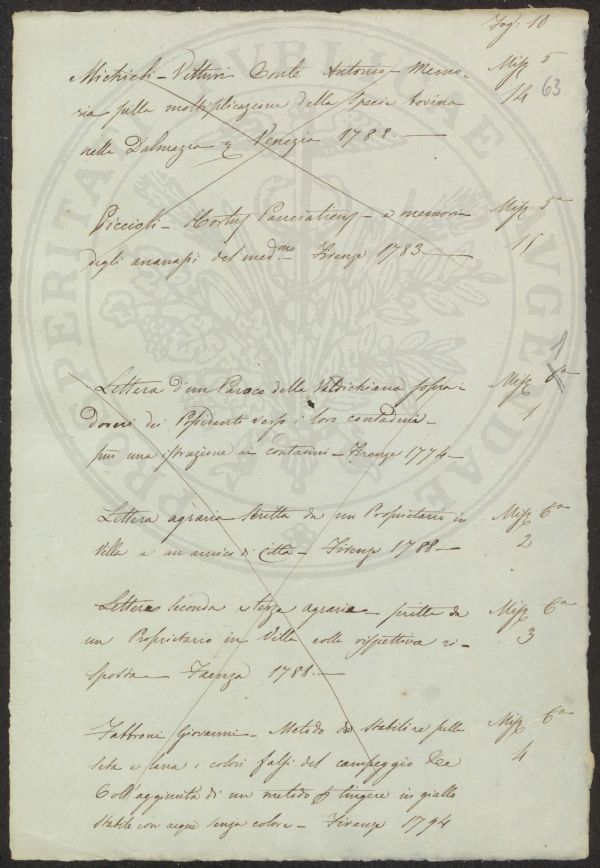 Fog. 10
63
Michieli-Vitturi Conte Antonio - Memo- Misc 5
ria sulla moltiplicazione della specie bovina 14
nella Dalmazia Venezia 1788.—
Piccioli - Hortus Panciaticus - e memoria Misc 5a
degli ananassi del medmo - Firenze 1783— 15
1
Lettera d'un Paroco della Valdichiana sopra i Misc 6a
doveri dei Possidenti verso i loro contadini - 1
più una istruzione ai contadini - Firenze 1774—
Lettera agraria scritta da un Proprietario in Misc 6a
Villa a un amico di città - Firenze 1788— 2
Lettera seconda e terza agraria scritta da Misc 6a
un Proprietario in Villa colla rispettiva ri- 3
sposta Faenza 1788.—
Fabbroni Giovanni - Metodo da stabilire sulla Misc 6a
seta e lana i colori falsi del campeggio &ca 4
Coll'aggiunta di un metodo p tingere in giallo
stabile con acqua senza colore - Firenze 1794
PROSPERITATI PUBLICAE AUGENDAE